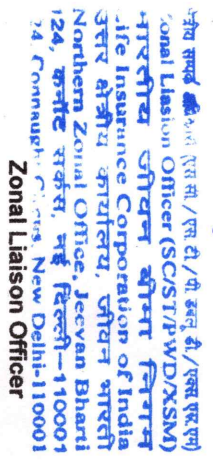 क्षेत्रीय सम्पर्क अधिकारी (एस सी./एस. टी./पी. डब्लू. डी./एक्स एस.एम)
Zonal Liasion Officer (SC/ST/PWD/XSM)
भारतीय जीवन बीमा निगम
Life Insurance Corporation of India
उत्तर क्षेत्रीय कार्यालय, जीवन भारती
Northern Zonal Office, Jeevan Bharti
124, कनॉट सर्कस, नई दिल्ली-110001
124, Connaught Circus, New Delhi-110001
Zonal Liaison Officer